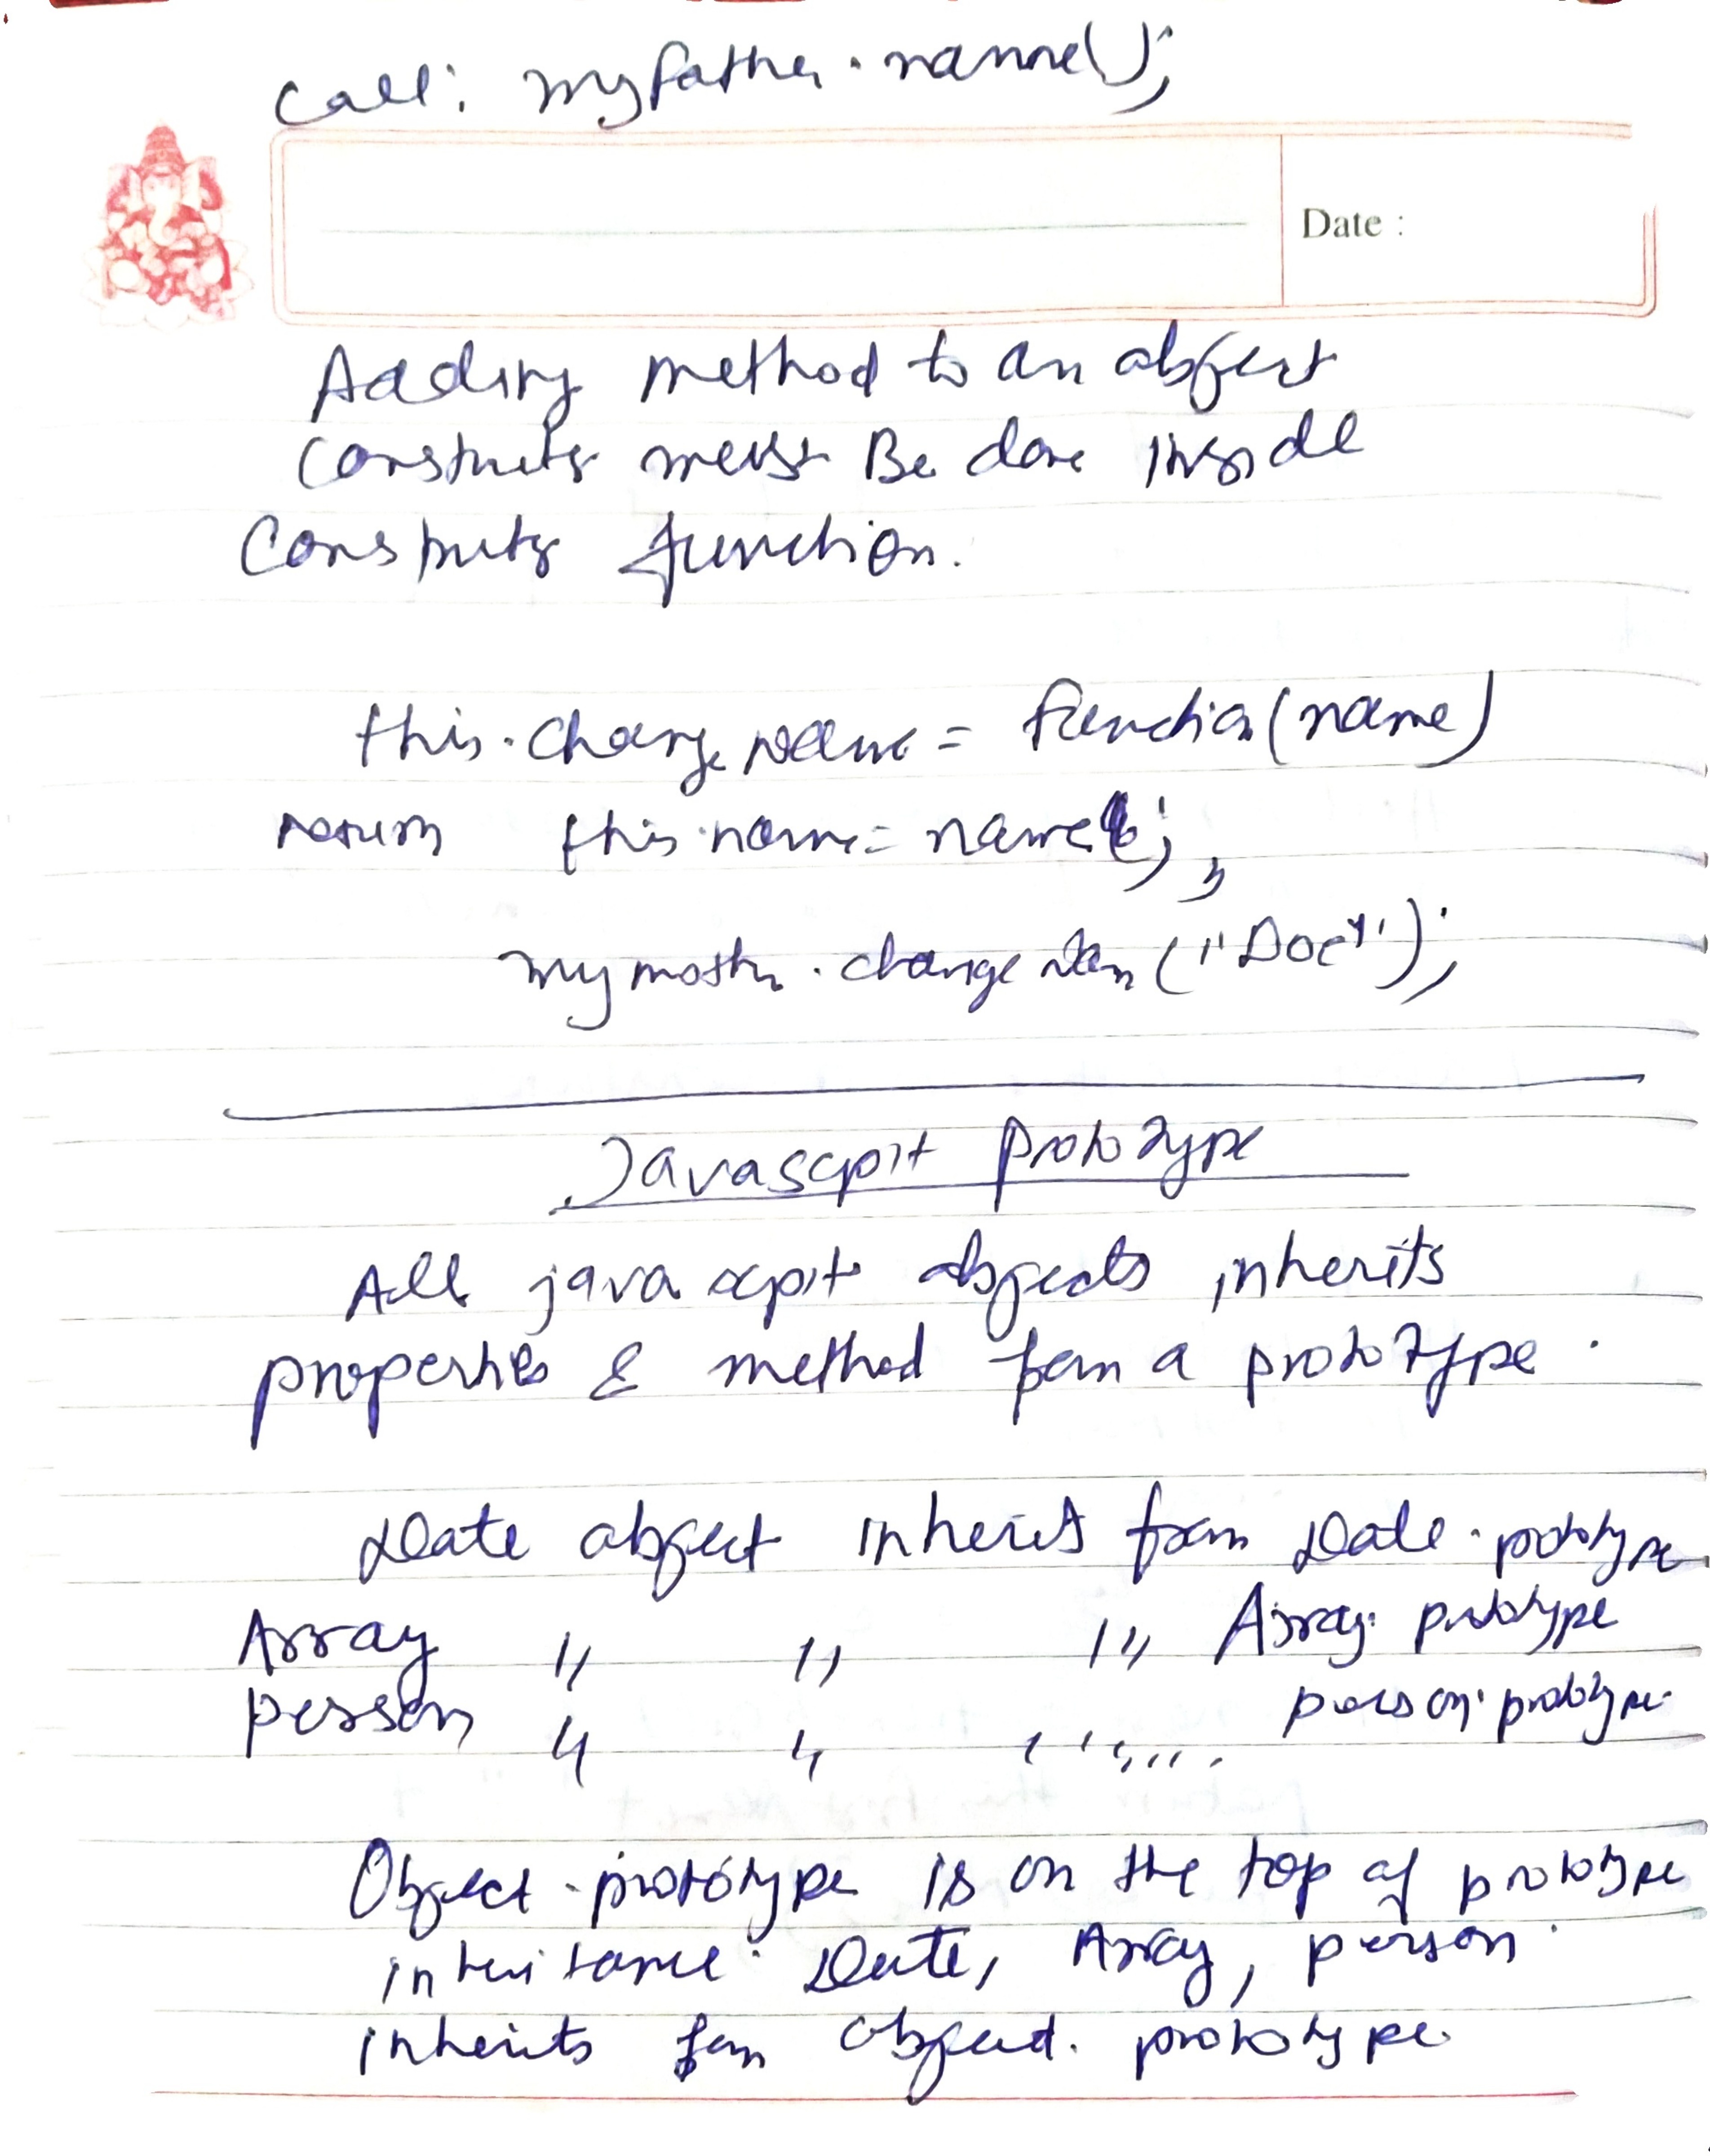 call: myfather.name();
Date :
Adding method to an object
constructor must Be done inside
Constructor function.
this.changeName = function(name)
return this.name = name;
mymother.changeNam ("Doe");
Javascpit prototype
All javascpit objects inherits
properties & method from a prototype.
Date object inherits from Date.prototype
Array " " " Array.prototype
person " " " person.prototype
Object.prototype is on the top of prototype
inheritance. Date, Array, person
inherits from object.prototype